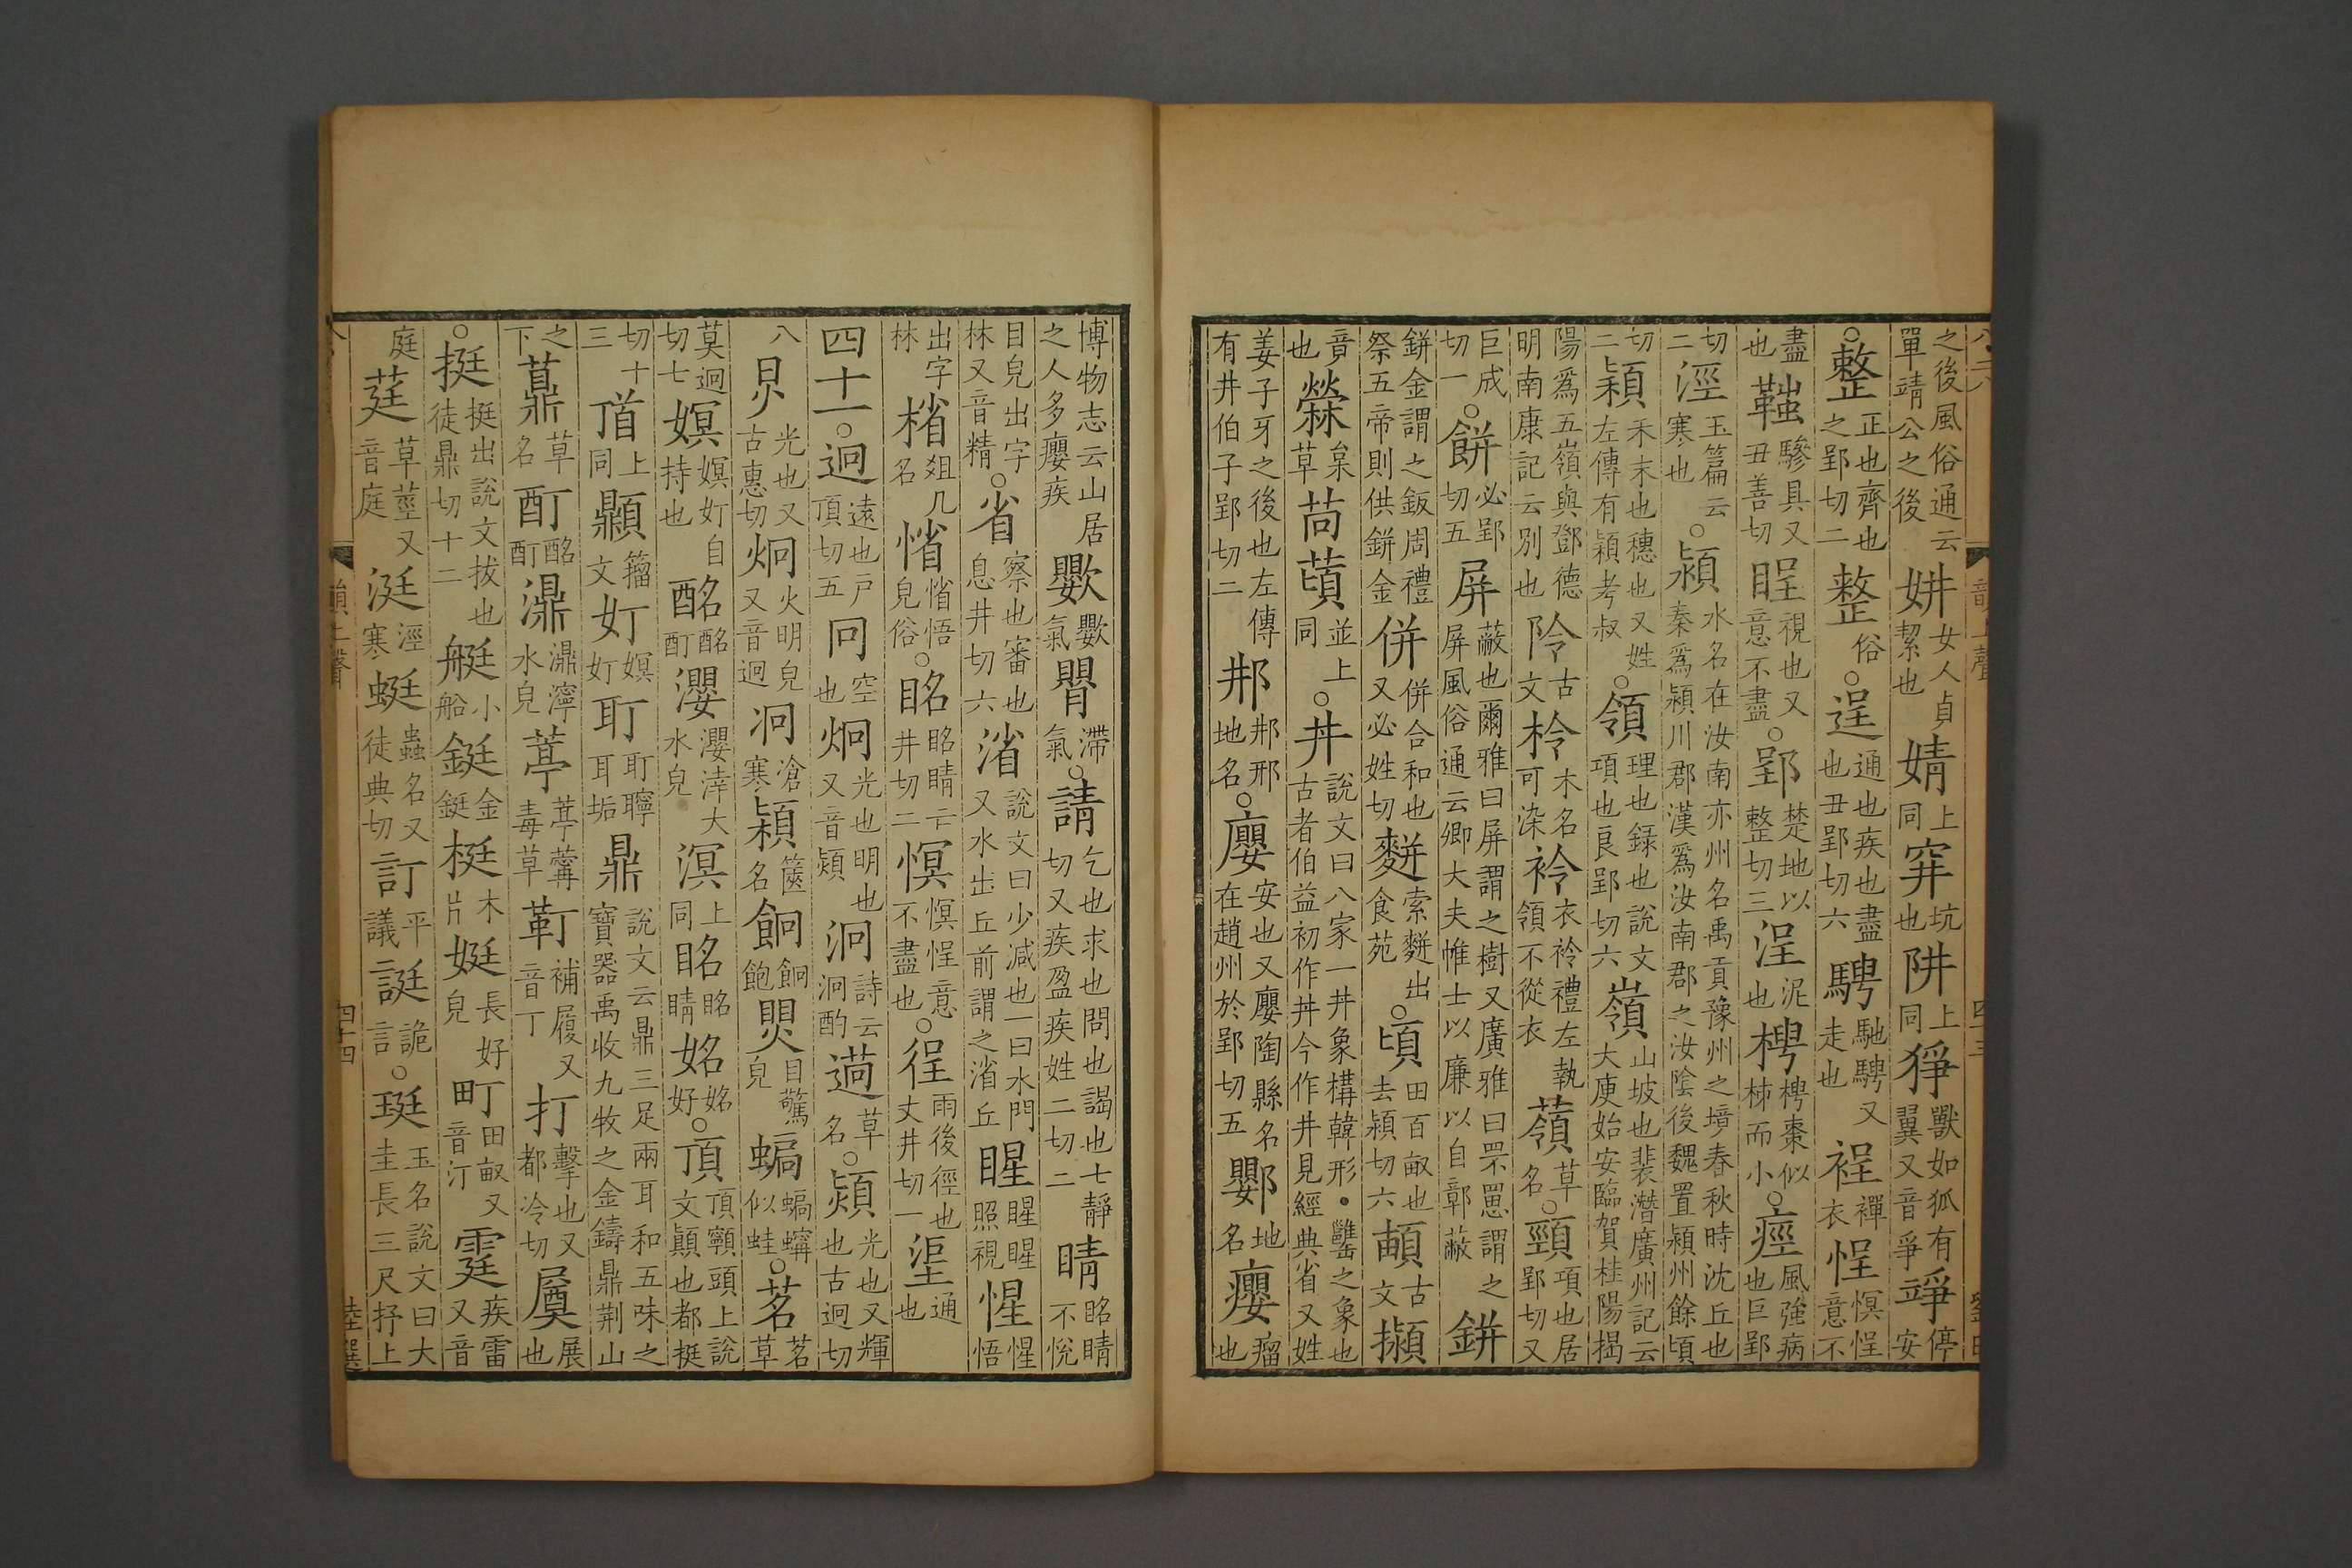 之後風俗通云單靖公之後妌女人貞絜也婧上同穽坑也阱上同猙獸如狐有翼又音爭竫停安
○整正也齊也之郢切二整俗○逞通也疾也盡也丑郢切六騁馳騁又走也裎襌衣悜愩悜意不
盡也驂具又丑善切睈視也又意不盡○郢楚地以整切三浧泥也梬梬棗似柹而小○痙風強病也巨郢
切二涇玉篇云寒也○潁水名在汝南亦州名禹貢豫州之域春秋時沈丘也秦爲潁川郡漢爲汝南郡之汝陰後魏置潁州餘頃
切二穎禾末也穗也又姓左傳有穎考叔○領理也録也說文項也良郢切六嶺山坡也裴潛廣州記云大庾始安臨賀桂陽揭
陽爲五嶺與鄧德明南康記云別也阾古文柃木名可染袊衣袊禮左執領不從衣草名○頸項也居郢切又
巨成切一○餅必郢切五屏蔽也爾雅曰屏謂之樹又廣雅曰罘罳謂之屏風俗通云卿大夫帷士以廉以自鄣蔽鉼
鉼金謂之鈑周禮祭五帝則供鉼金併併合和也又必姓切䴵索䴵出食苑○頃田百畝也去潁切六古文
也檾枲草苘䔛並上同○丼說文曰八家一丼象構韓形雝之象也古者伯益初作丼今作井見經典省又姓
姜子牙之後也左傳有井伯子郢切二地名○廮安也又廮陶縣名在趙州於郢切五䣐地名癭瘤也
博物志云山居之人多癭疾氣滯氣○請乞也求也問也謁也七靜切又疾盈疾姓二切二睛眳睛不悅
目皃出字林又音精○省察也審也息井切六渻說文曰少減也一曰水門又水出丘前謂之渻丘睲睲睲照視惺惺悟
出字林㮐爼几名㥠㥠悟皃俗○眳眳睛亡井切二慏慏悜意不盡也○徎雨後徑也丈井切一渠通也
四十一○迥遠也戶頂切五冋空也炯光也明也又音熲泂詩云泂酌草名○熲光也又輝也古迥切
八炅光也又古惠切炯火明皃又音迥冷滄寒篋名䭃䭃飽目驚皃蛙似○茗茗草
莫迥切七嫇嫇奵自持也酩酩酊瀴瀴涬大水皃溟上同眳眳睛姳姳好○頂頂顟頭上說文顛也都挺
切十三頂上同籀文奵嫇奵耵耵聹耳垢鼎說文云鼎三足兩耳和五味之寶器禹收九牧之金鑄鼎荊山
之下薡草名酊酩酊濎濎濘水皃葶葶藶毒草靪補履又音丁打擊也又都冷切展也
○挺挺出說文拔也徒鼎切十二艇小船鋌金鋌梃木片娗長好皃町田畝又音汀霆疾雷又音
庭莛草莖又音庭涏涇寒蜓蟲名又徒典切訂平議誔詭言○珽玉名說文曰大圭長三尺抒上